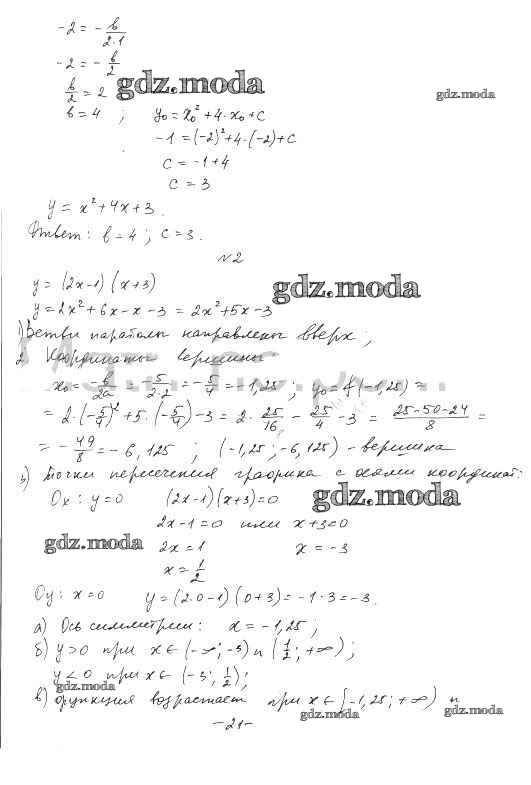 -2 = - b/(2·1)
-2 = - b/2
b/2 = 2
gdz.moda
gdz.moda
b = 4 ; y₀ = x₀² + 4·x₀ + c
-1 = (-2)² + 4·(-2) + c
c = -1 + 4
c = 3
y = x² + 4x + 3.
Ответ: b = 4 ; c = 3.
№2
y = (2x-1)(x+3)
gdz.moda
y = 2x² + 6x - x - 3 = 2x² + 5x - 3
1) Ветви параболы направлены вверх;
2. Координаты вершины
x₀ = - b/2a = - 5/(2·2) = - 5/4 = -1,25 ; y₀ = f(-1,25) =
= 2·(-5/4)² + 5·(-5/4) - 3 = 2· 25/16 - 25/4 - 3 = (25-50-24)/8 =
= - 49/8 = -6,125 ; (-1,25; -6,125) - вершина
3) Точки пересечения графика с осями координат:
Ox: y = 0 (2x-1)(x+3) = 0
gdz.moda
2x-1 = 0 или x+3 = 0
gdz.moda
2x = 1 x = -3
x = 1/2
Oy: x = 0 y = (2·0-1)(0+3) = -1·3 = -3.
а) Ось симметрии: x = -1,25 ;
б) y>0 при x ∈ (-∞; -3) и (1/2; +∞);
y<0 при x ∈ (-3; 1/2);
gdz.moda
в) функция возрастает при x ∈ [-1,25; +∞) и
gdz.moda
gdz.moda
-21-